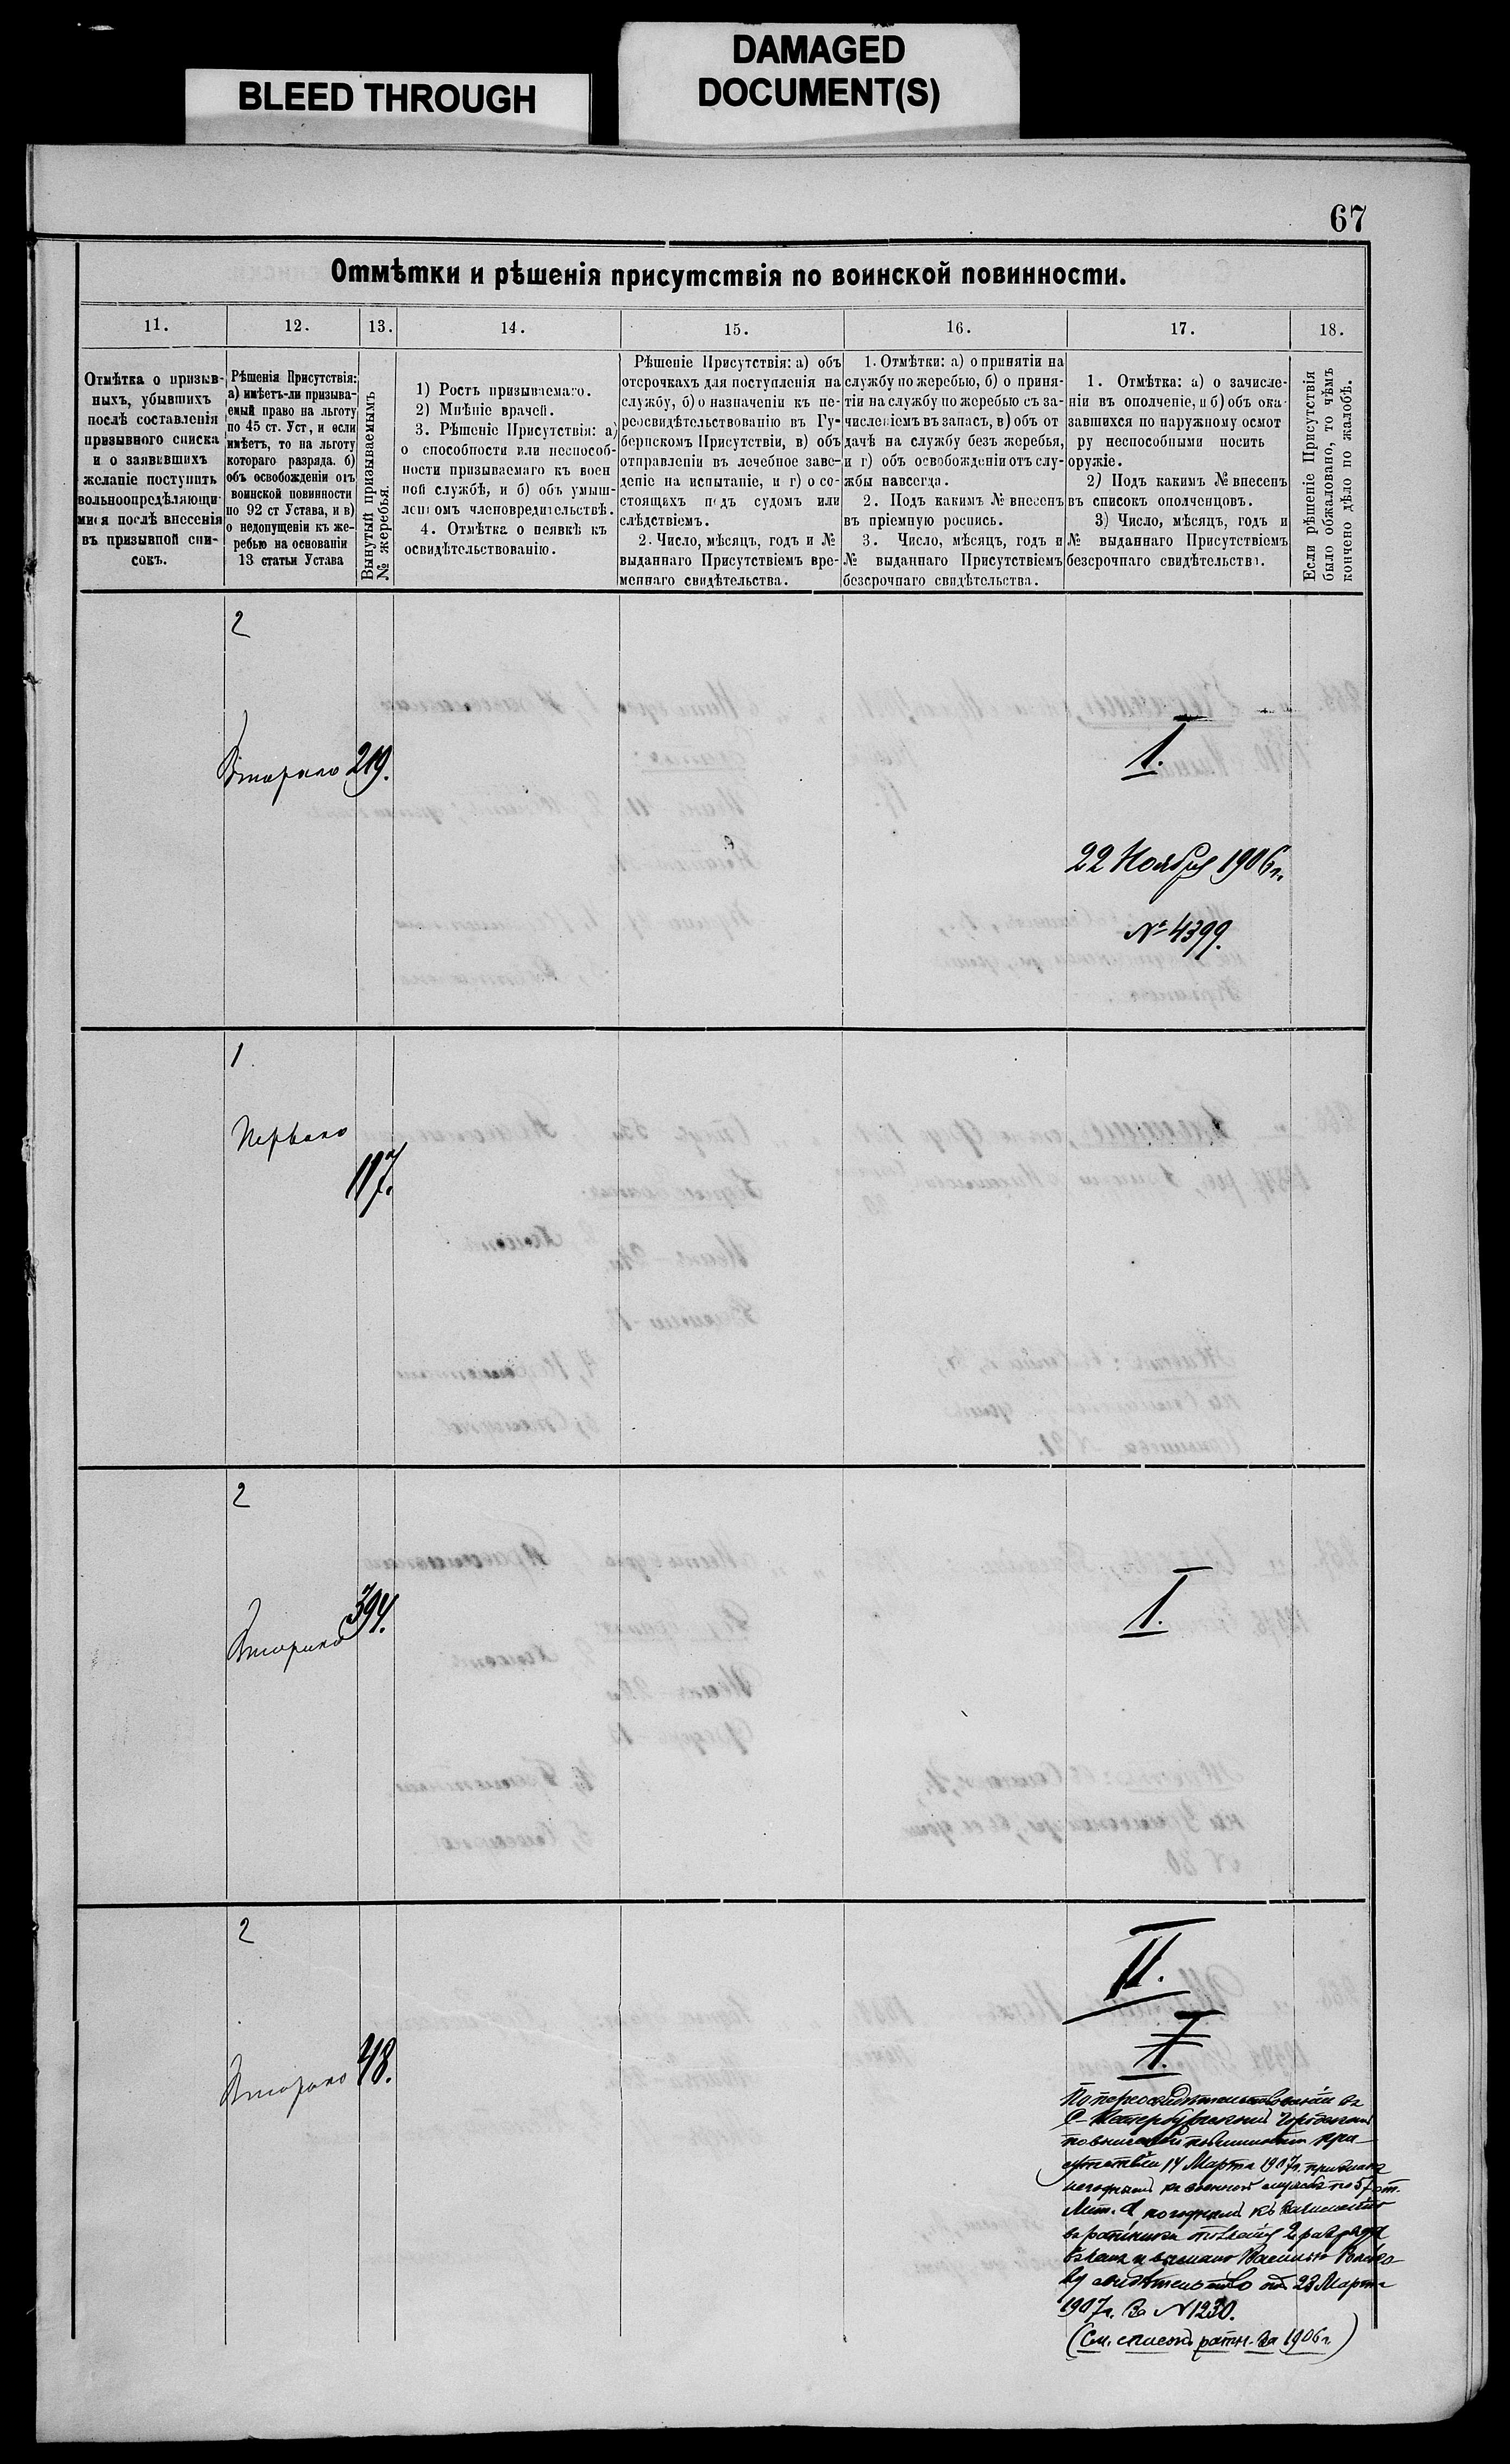 BLEED THROUGH
DAMAGED
DOCUMENT(S)
67
Отмѣтки и рѣшенія присутствія по воинской повинности.
11.
12.
13.
14.
15.
16.
17.
18.
Отмѣтка о призыв-
ныхъ, убывшихъ
послѣ составленія
призывного списка
и о заявившихъ
желаніе поступить
вольноопредѣляющи-
мися послѣ внесенія
въ призывной спи-
сокъ.
Рѣшенія Присутствія:
а) имѣетъ-ли призыва-
емый право на льготу
по 45 ст. Уст, и если
имѣетъ, то на льготу
котораго разряда. б)
объ освобожденіи отъ
воинской повинности
по 92 ст Устава, и в)
о недопущеніи къ же-
ребью на основаніи
13 статьи Устава
Вынутый призываемымъ
№ жеребья.
1) Ростъ призываемаго.
2) Мнѣніе врачей.
3. Рѣшеніе Присутствія: а)
о способности или неспособ-
ности призываемаго къ воен
ной службѣ, и б) объ умыш-
леномъ членовредительствѣ.
4. Отмѣтка о неявкѣ къ
освидѣтельствованію.
Рѣшеніе Присутствія: а) объ
отсрочкахъ для поступленія на
службу, б) о назначеніи къ пе-
реосвидѣтельствованію въ Гу-
бернскомъ Присутствіи, в) объ
отправленіи въ лечебное заве-
деніе на испытаніе, и г) о со-
стоящихъ подъ судомъ или
слѣдствіемъ.
2. Число, мѣсяцъ, годъ и №
выданнаго Присутствіемъ вре-
меннаго свидѣтельства.
1. Отмѣтки: а) о принятіи на
службу по жеребью, б) о приня-
тіи на службу по жеребью съ за-
численіемъ въ запасъ, в) объ от
дачѣ на службу безъ жеребья,
и г) объ освобожденіи отъ слу-
жбы навсегда.
2. Подъ какимъ № внесенъ
въ пріемную роспись.
3. Число, мѣсяцъ, годъ и
№ выданнаго Присутствіемъ
безсрочнаго свидѣтельства.
1. Отмѣтка: а) о зачисле-
ніи въ ополченіе, и б) объ ока-
завшихся по наружному осмот
ру неспособными носить
оружіе.
2) Подъ какимъ № внесенъ
въ списокъ ополченцовъ.
3) Число, мѣсяцъ, годъ и
№ выданнаго Присутствіемъ
безсрочнаго свидѣтельства.
Если рѣшеніе Присутствія
было обжаловано, то чѣмъ
кончено дѣло по жалобѣ.
2
Второго
219.
I.
22 Ноября 1906 г.
№ 4399.
1
Перваго
117.
2
Второго
394.
I.
2
Второго
48.
II.
I.
По переосвидѣтельствованіи въ
С-Петербургскомъ Городскомъ
по воинской повинности при-
сутствіи 14 Марта 1907 г. признанъ
негоднымъ къ военной службѣ по 57 ст.
Лит. А, но годнымъ къ зачисленію
въ ратники ополченія 2 разряда
свидѣтельство отъ 23 Марта
1907 г. за № 1230.
(См. списокъ ратн. за 1906 г.)